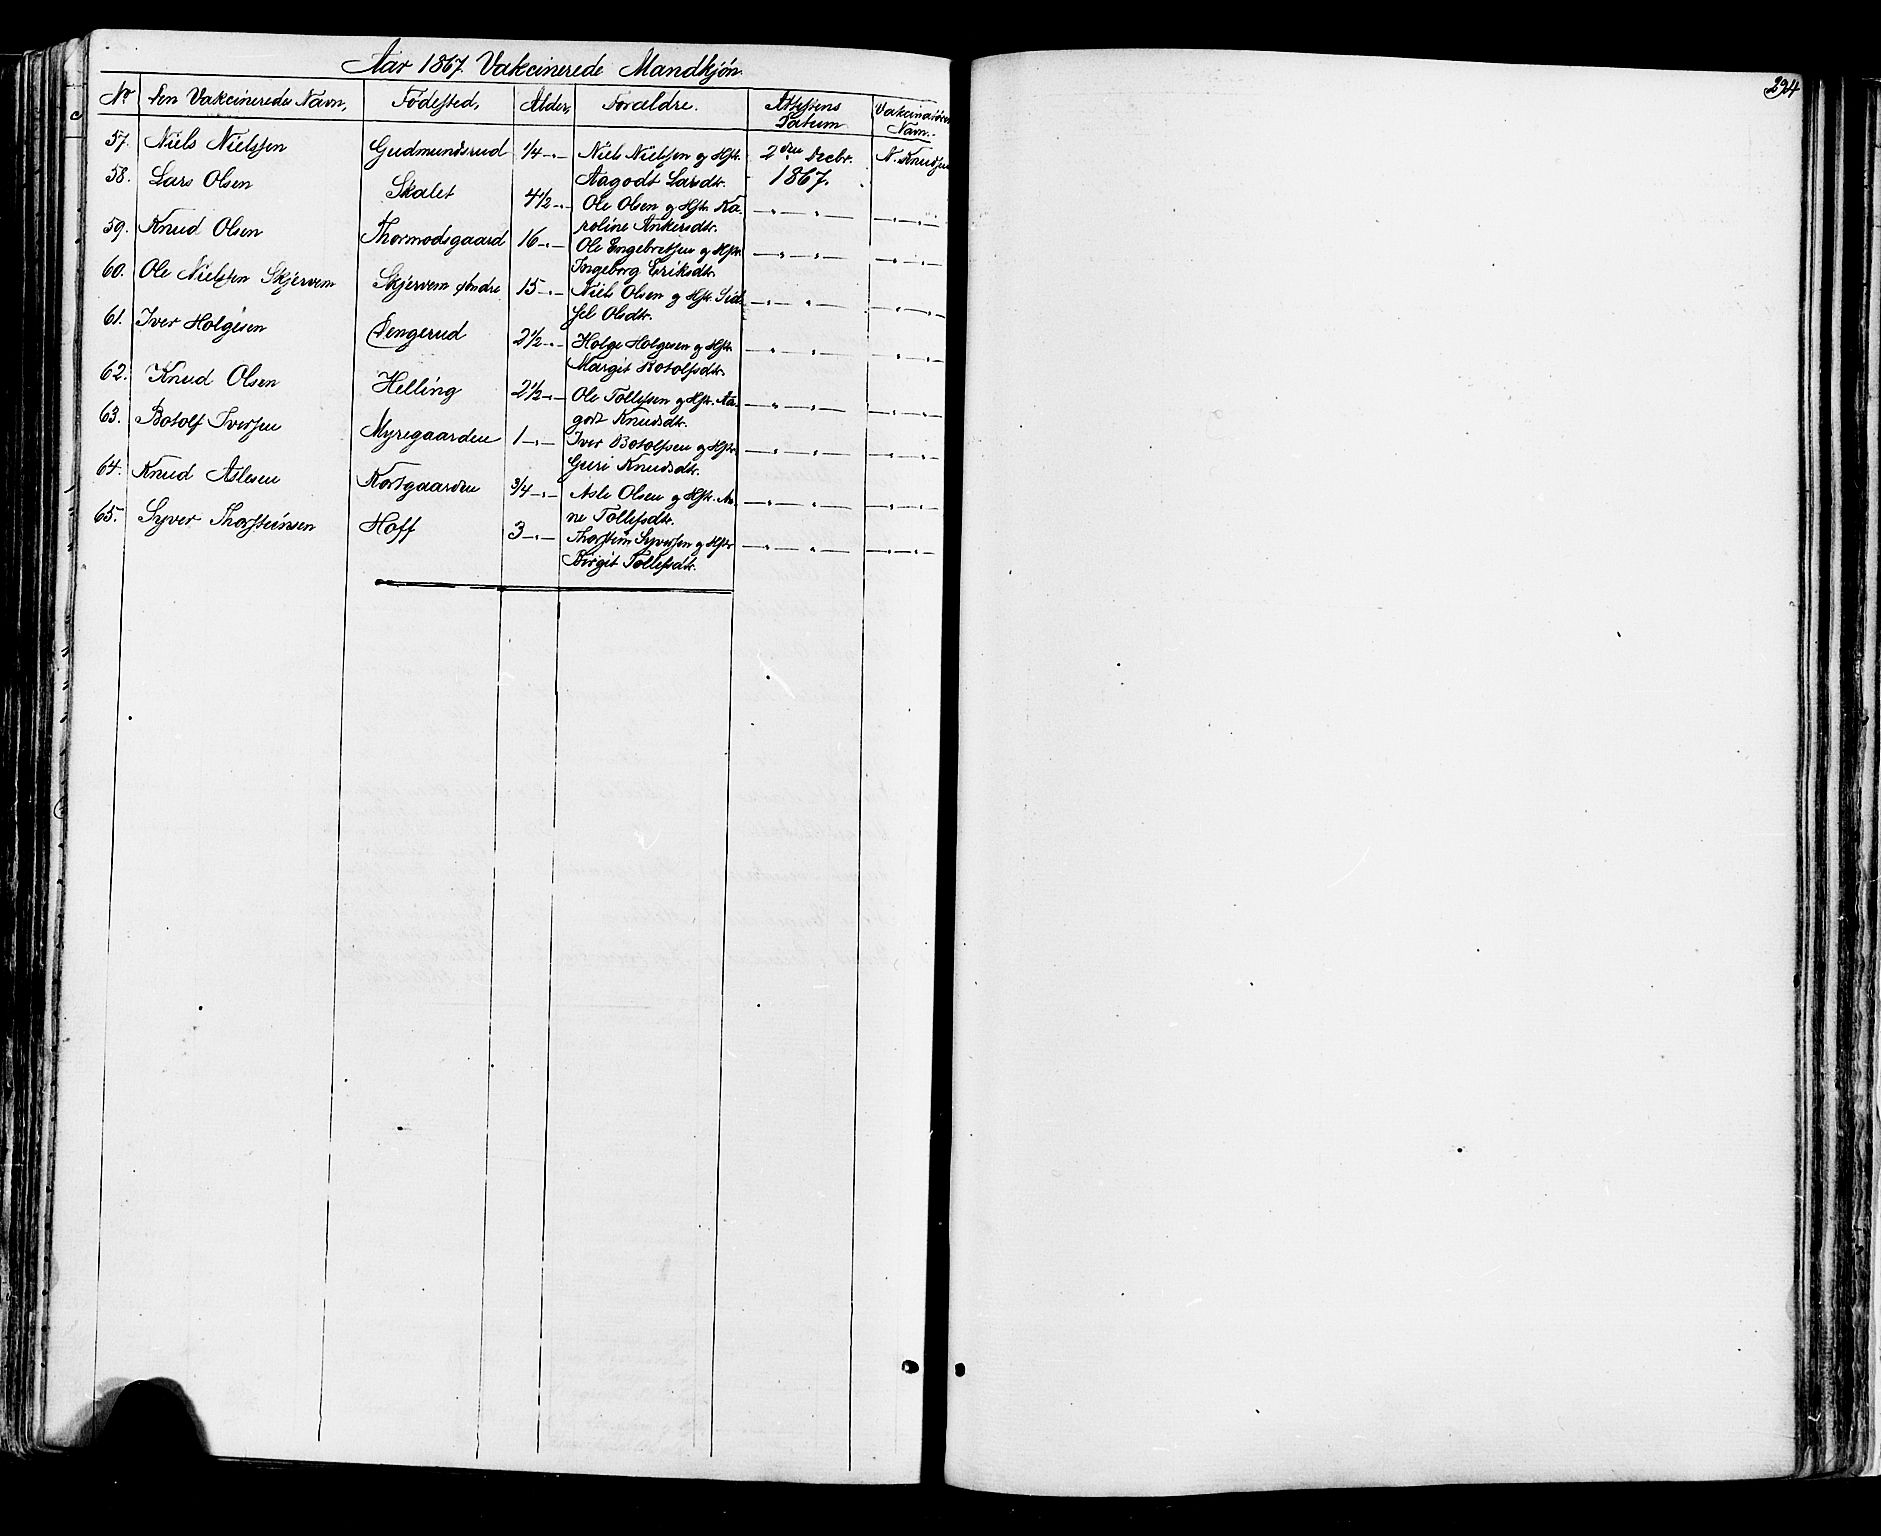 Aar 1867. Vakcinerede Mandkjøn.
No Den Vakcineredes Navn, Fødested, Alder, Forældre. Attestens Datum Vakcinatørens Navn.
57. Niels Nielssen Gudmundsrud 1/4 -"- Niels Nielssen og Hstr. 2den Decbr. N. Knudsen
Aagodt Larsdtr. 1867.
58. Lars Olsen Skalet 4 1/2 -"- Ole Olsen og Hstr. Ka- -"- " -"- -"-"-
roline Ankersdtr.
59. Knud Olsen Thormodsgaard 16 -"- Ole Engebretsen og Hstr. -"- " -"- -"-"-
Ingeborg Eriksdtr.
60. Ole Nielssen Skjervem Skjervem søndre 15 -"- Niels Olsen og Hstr. Sid- -"- " -"- -"-"-
sel Olsdtr.
61. Iver Holgesen Dengerud 2 1/2 -"- Holge Holgesen og Hstr. -"- " -"- -"-"-
Margit Botolfsdtr.
62. Knud Olsen Helling 2 1/2 -"- Ole Tollefsen og Hstr. Aa- -"- " -"- -"-"-
got Knudsdtr.
63. Botolf Iversen Myregaarden 1 -"- Iver Botolfsen og Hstr. -"- " -"- -"-"-
Guri Knudsdtr.
64. Knud Aslesen Kortgaarden 3/4 -"- Asle Olsen og Hstr. An- -"- " -"- -"-"-
ne Tollefsdtr.
65. Syver Thorsteinsen Hoff 3 -"- Thorstein Syversen og Hstr -"- " -"- -"-"-
Birgit Tollefsdtr.
294